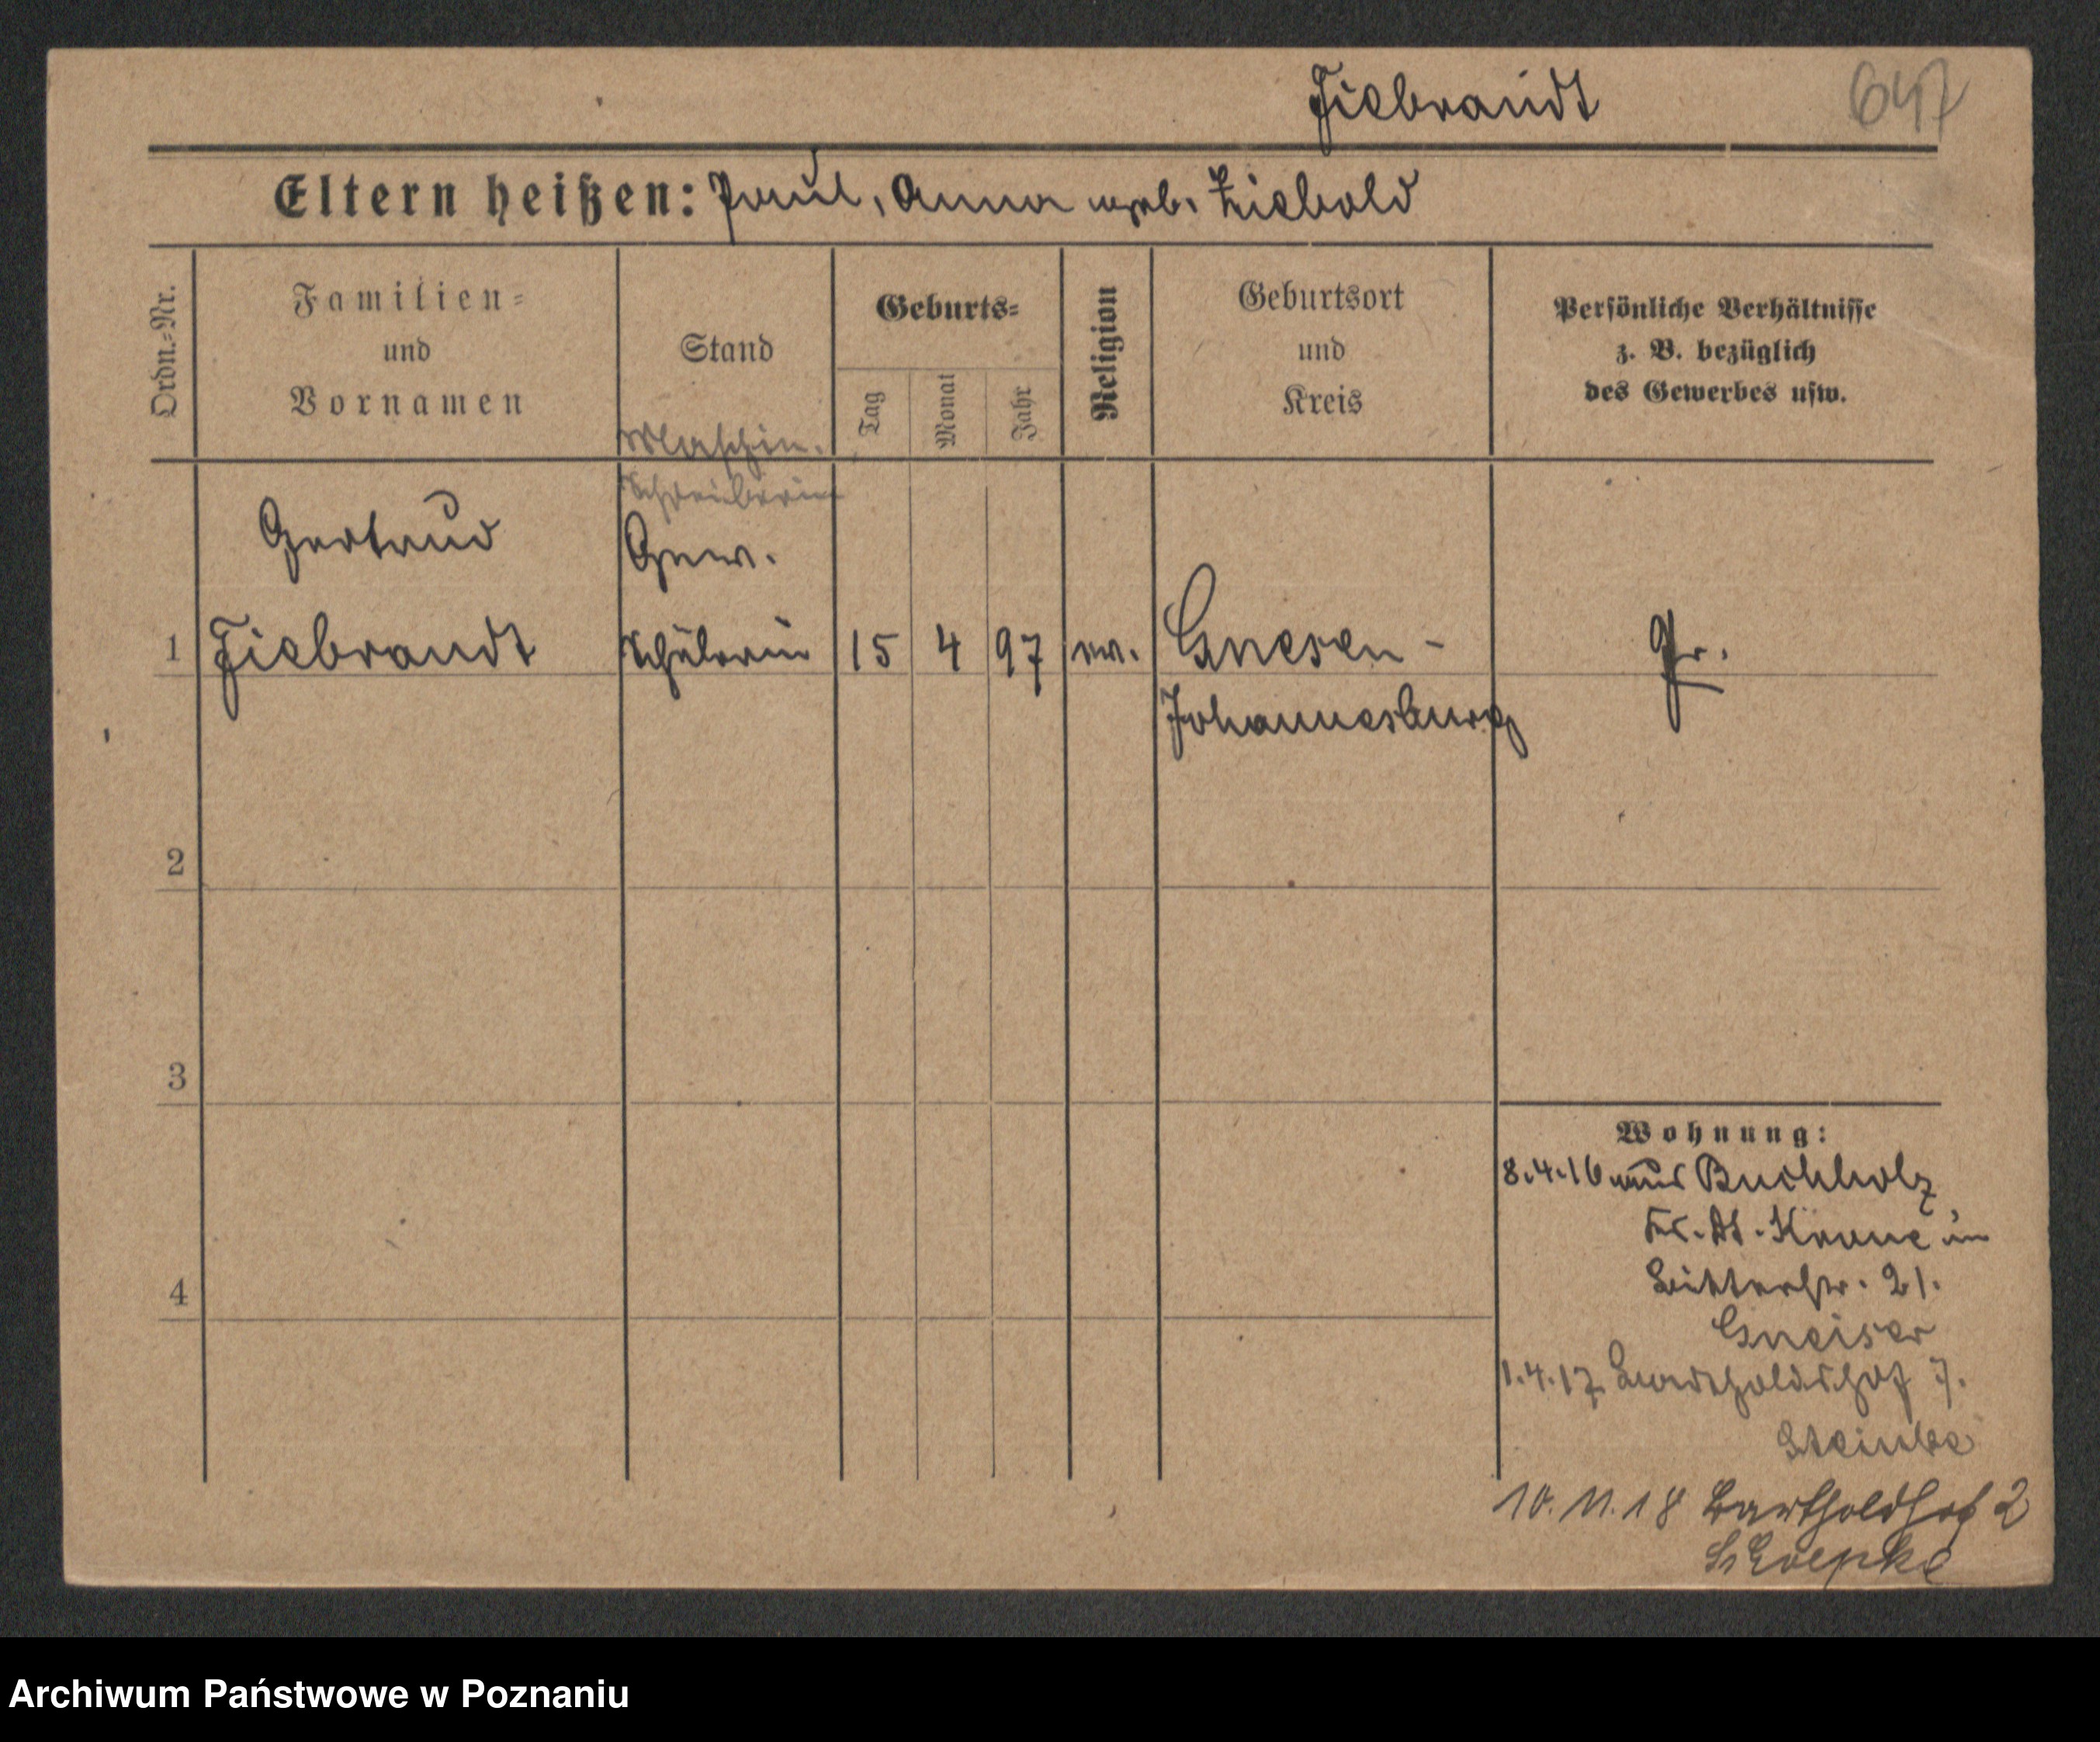 Fiebrandt 647
Eltern heißen: Paul, Anna geb. Liebold
Ordn.-Nr.
Familien-
und
Vornamen
Stand
Geburts-
Tag
Monat
Jahr
Religion
Geburtsort
und
Kreis
Persönliche Verhältnisse
z. B. bezüglich
des Gewerbes usw.
Maschin.
Schreiberin
Gertaud
Gew.
1 Fiebrandt Schülerin 15 4 97 ev. Gnesen -
Johannesburg
Pr.
2
3
4
Wohnung:
8.4.16 aus Buchholz
Kr. Dt. Krone in
Bitterstr. 21.
Gneiser
1.4.17. Bartholdshof 7.
Steinke
10.11.18 Bartholdshof 2
Schoepke
Archiwum Państwowe w Poznaniu